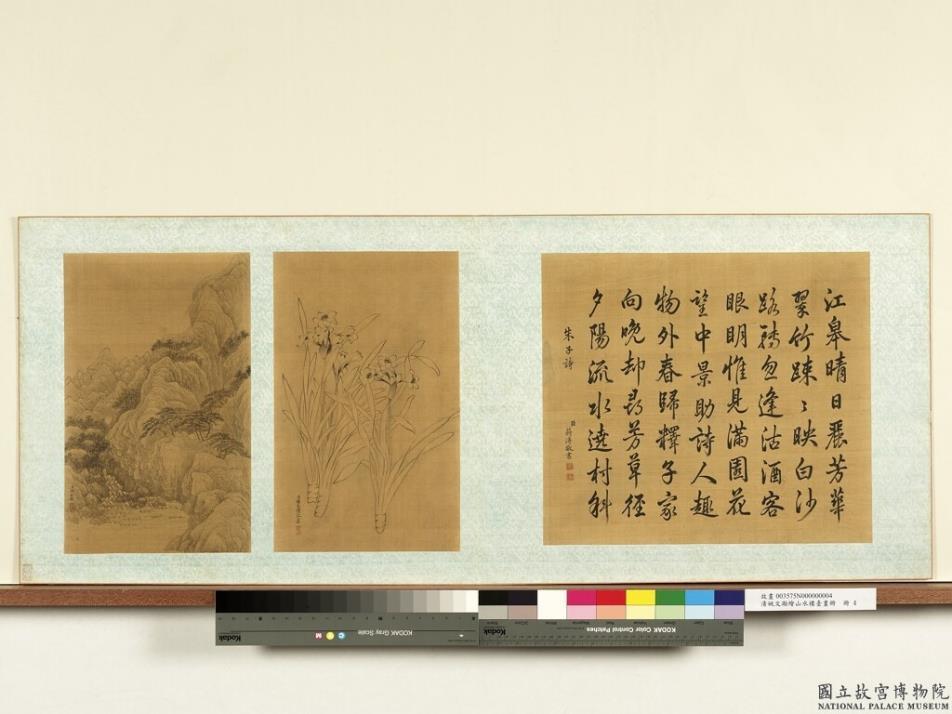 江皋晴日麗芳華
翠竹踈〻映白沙
路轉忽逢沽酒客
眼明惟見滿園花
望中景助詩人趣
物外春歸釋子家
向晚却尋芳草徑
夕陽流水遶村斜
朱子詩
臣蔣溥敬書
故畫 003575N000000004
清姚文瀚繪山水樓臺畫冊
Kodak
KODAK Gray Scale
C
Y
M
Kodak
KODAK Color Control Patches
國立故宮博物院
NATIONAL PALACE MUSEUM